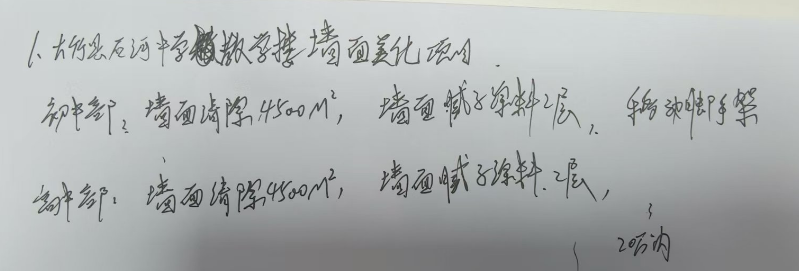 1、大竹县石河中学教学楼墙面美化项目.
初中部: 墙面清除4500M², 墙面腻子涂料2层, 移动脚手架
高中部: 墙面清除4500M², 墙面腻子涂料2层,
20万内